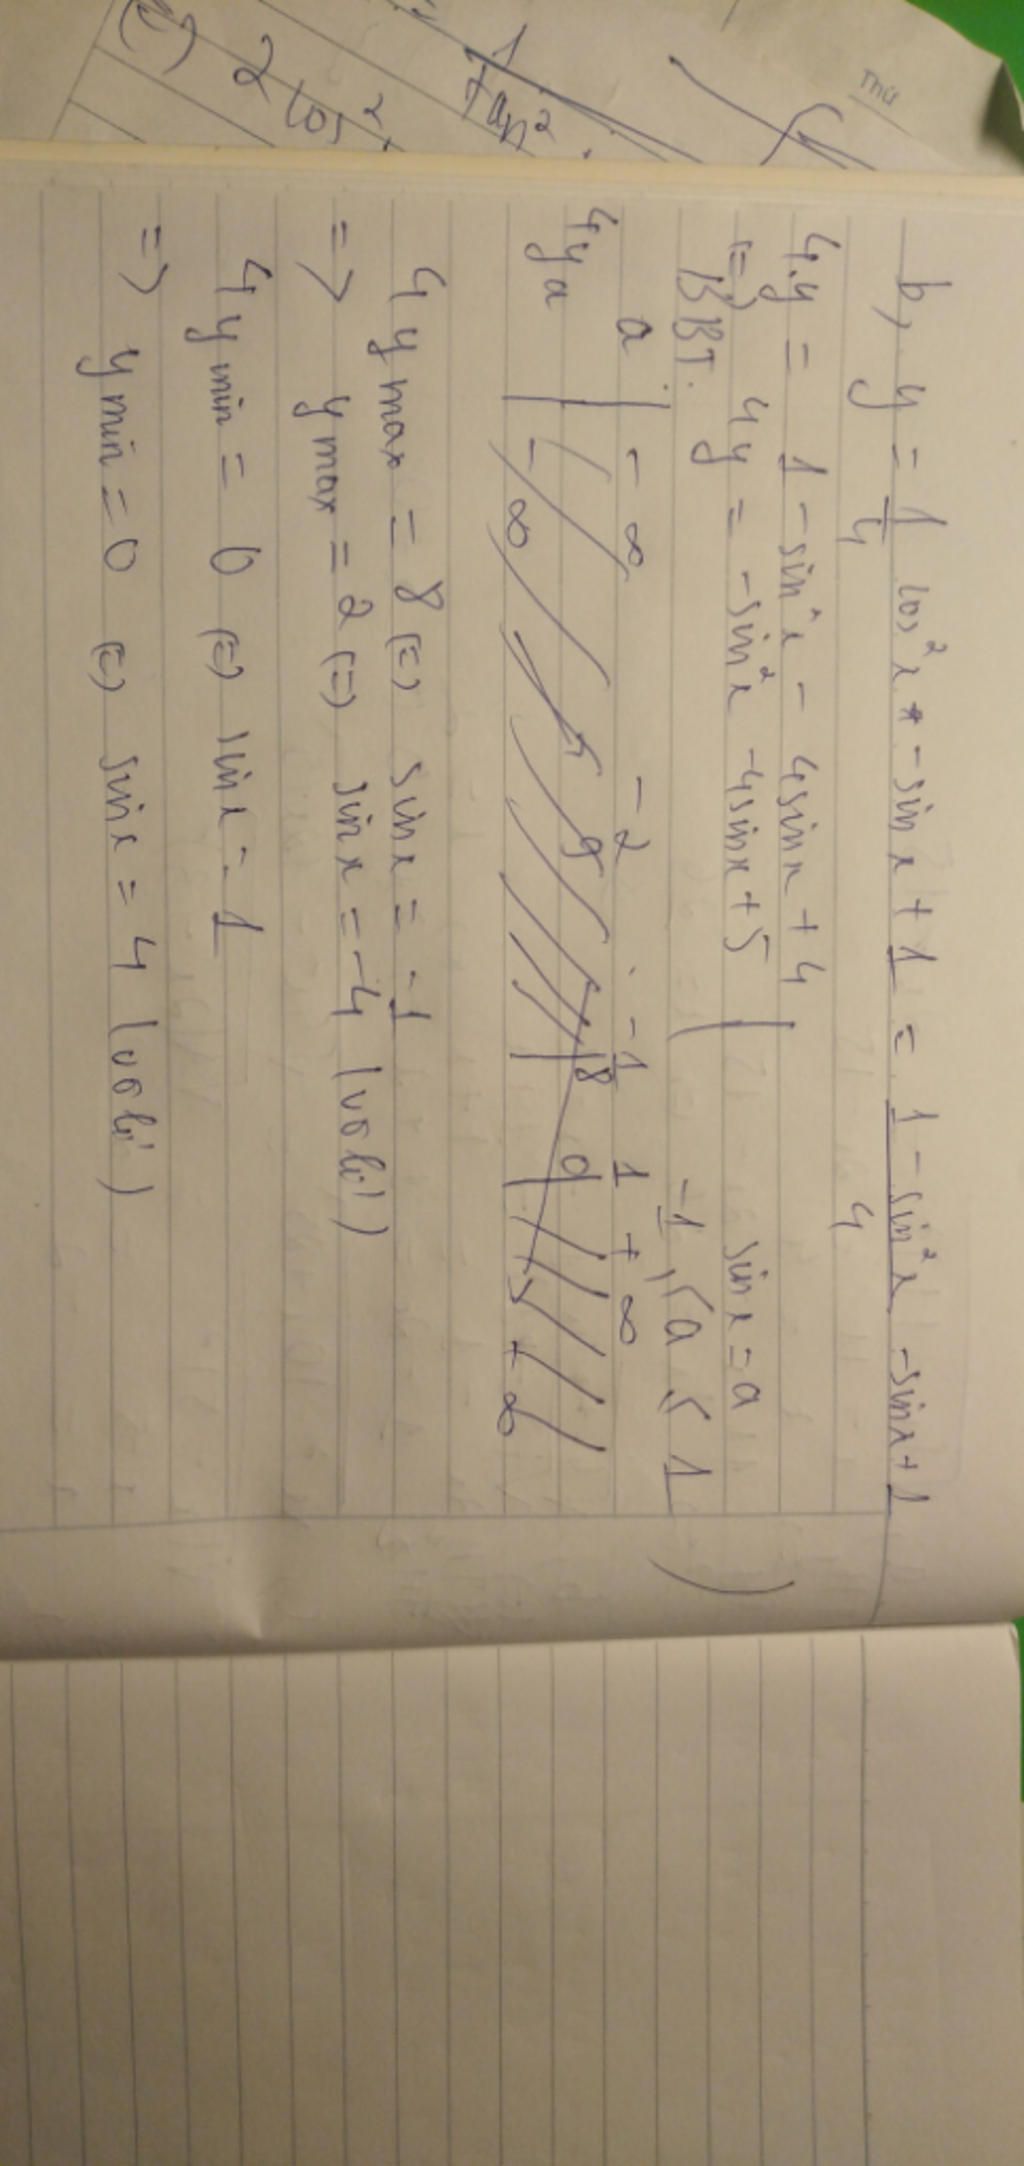 Thứ
1
tan²
2 cos²
b, y = 1/4 cos²x - sinx + 1 = (1 - sin²x)/4 - sinx + 1
4.y = 1 - sin²x - 4sinx + 4
(=) 4y = -sin²x - 4sinx + 5 | sinx = a
BBT. -1 ≤ a ≤ 1
a | -∞ -2 -1 1 +∞
4ya | -∞ 9 8 0 -∞
4ymax = 8 (=) sinx = -1
=> ymax = 2 (=) sinx = -4 (vô lí)
4ymin = 0 (=) sinx = 1
=> ymin = 0 (=) sinx = 4 (vô lí)